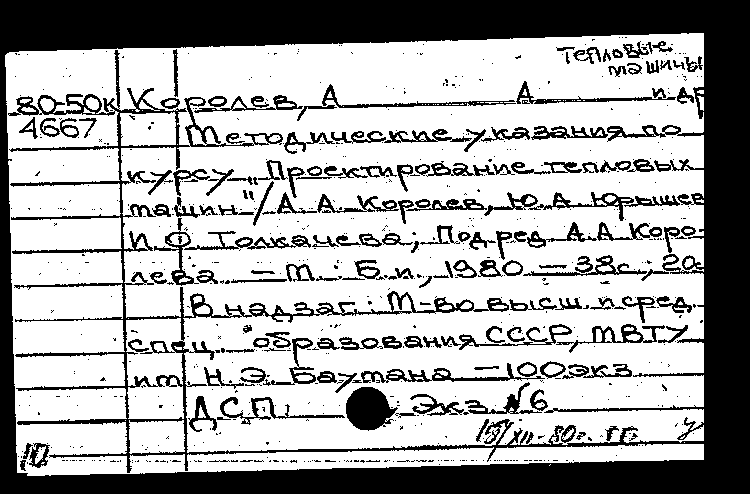 Тепловые
машины
80-50к Королев, А А и др
4667 Методические указания по
курсу „Проектирование тепловых
машин"/А. А. Королев, Ю. А Юрышев
И. О. Толкачева; Под ред А.А Коро-
лева — М. : Б. и., 1980 — 38с.; 20с
В надзаг.: М-во высш. и сред.
спец. образования СССР, МВТУ
им. Н.Э. Баумана —100экз
Д.С.П. Экз. №6
15/XII-80г. ГГ У
10